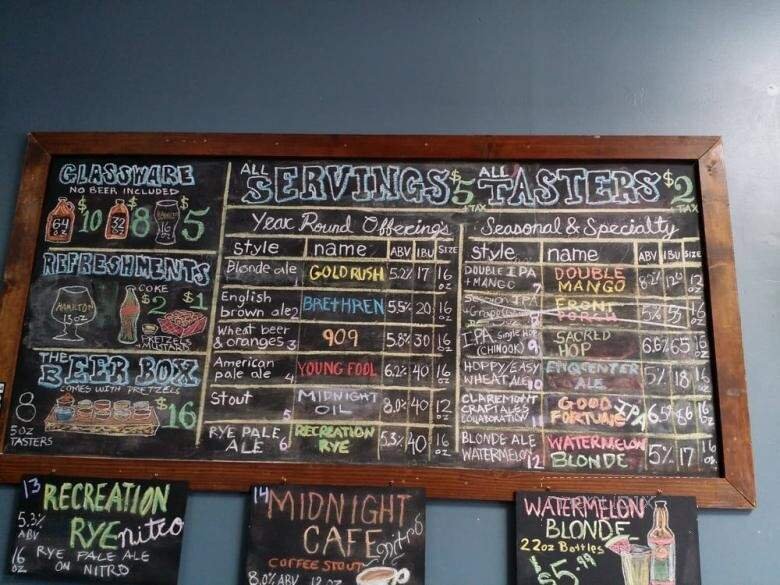 GLASSWARE
NO BEER INCLUDED
64 oz $10 32 oz $8 16 $5
REFRESHMENTS
HAMILTON
COKE
$2 $1
PRETZELS
MUSTARD
THE
BEER BOX
COMES WITH PRETZELS
8 $16
5oz
TASTERS
ALL SERVINGS $5 +TAX
ALL TASTERS $2 +TAX
Year Round Offerings
style name ABV IBU SIZE
Blonde ale 1 GOLD RUSH 5.2% 17 16 oz
English brown ale 2 BRETHREN 5.5% 20 16 oz
Wheat beer & oranges 3 909 5.8% 30 16 oz
American pale ale 4 YOUNG FOOL 6.2% 40 16 oz
Stout 5 MIDNIGHT OIL 8.0% 40 12 oz
RYE PALE ALE 6 RECREATION RYE 5.3% 40 16 oz
Seasonal & Specialty
style name ABV IBU SIZE
DOUBLE IPA + MANGO 7 DOUBLE MANGO 8.2% 120 12 oz
Session IPA FRONT PORCH 5%
IPA Single Hop (CHINOOK) 9 SACRED HOP 6.6% 65 16 oz
HOPPY/EASY WHEAT ALE 10 ALE 5% 18 16 oz
CLAREMONT CRAFT ALES COLLABORATION 11 GOOD FORTUNE IPA 6.5% 86 16 oz
BLONDE ALE WATERMELON 12 WATERMELON BLONDE 5% 17 16 oz
13 RECREATION
RYE nitro
5.3%
ABV
16 oz
RYE PALE ALE
ON NITRO
14 MIDNIGHT
CAFE nitro
COFFEE STOUT
8.0% ABV 12 oz
WATERMELON
BLONDE
22oz Bottles
$5.99